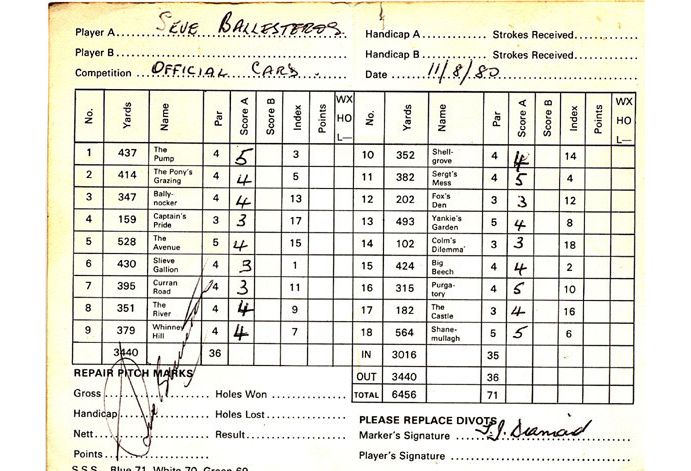 Player A SEVE BALLESTEROS Handicap A Strokes Received
Player B Handicap B Strokes Received
Competition OFFICIAL CARD. Date 11/8/80
No. Yards Name Par Score A Score B Index Points WX HO L— No. Yards Name Par Score A Score B Index Points WX HO L—
1 437 The Pump 4 5 3 10 352 Shell-grove 4 4 14
2 414 The Pony's Grazing 4 4 5 11 382 Sergt's Mess 4 5 4
3 347 Bally-nocker 4 4 13 12 202 Fox's Den 3 3 12
4 159 Captain's Pride 3 3 17 13 493 Yankie's Garden 5 4 8
5 528 The Avenue 5 4 15 14 102 Colm's Dilemma' 3 3 18
6 430 Slieve Gallion 4 3 1 15 424 Big Beech 4 4 2
7 395 Curran Road 4 3 11 16 315 Purga-tory 4 5 10
8 351 The River 4 4 9 17 182 The Castle 3 4 16
9 379 Whinney Hill 4 4 7 18 564 Shane-mullagh 5 5 6
3440 36 IN 3016 35
OUT 3440 36
TOTAL 6456 71
REPAIR PITCH MARKS
Gross Holes Won
Handicap Holes Lost
Nett Result
Points
PLEASE REPLACE DIVOTS
Marker's Signature J.J. Diamond
Player's Signature
S.S.S. Blue 71 White 70 Green 69